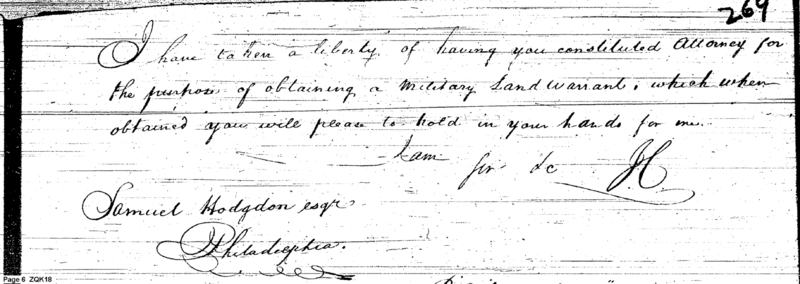 269
I have taken a liberty of having you constituted Attorney for
the purpose of obtaining a Military Land Warrant, which when
obtained you will please to hold in your hands for me.
I am
Sir &c JC
Samuel Hodgdon esqr
Philadelphia.
Page 6 ZQK18